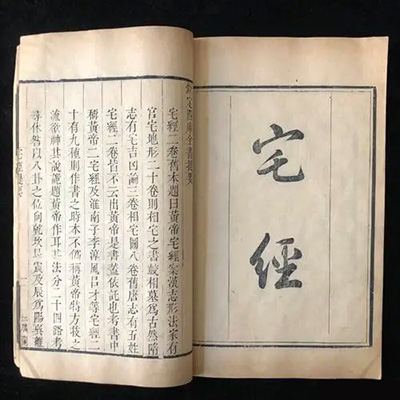 宅經
欽定四庫全書提要
宅經二卷舊本題曰黃帝宅經案漢志形法家有
宮宅地形二十卷則相宅之書較相墓爲古然隋
志有宅吉凶論三卷相宅圖八卷舊唐志有五姓
宅經二卷皆不云出黃帝是書蓋依託也考書中
稱黃帝二宅經及淮南子李淳風呂才等宅經二
十有九種則作書之時本不僞稱黃帝特方技之
流欲神其說詭題黃帝作耳其法分二十四路考
尋休咎以八卦之位向乾坎艮震及辰爲陽巽離
宅經提要
一